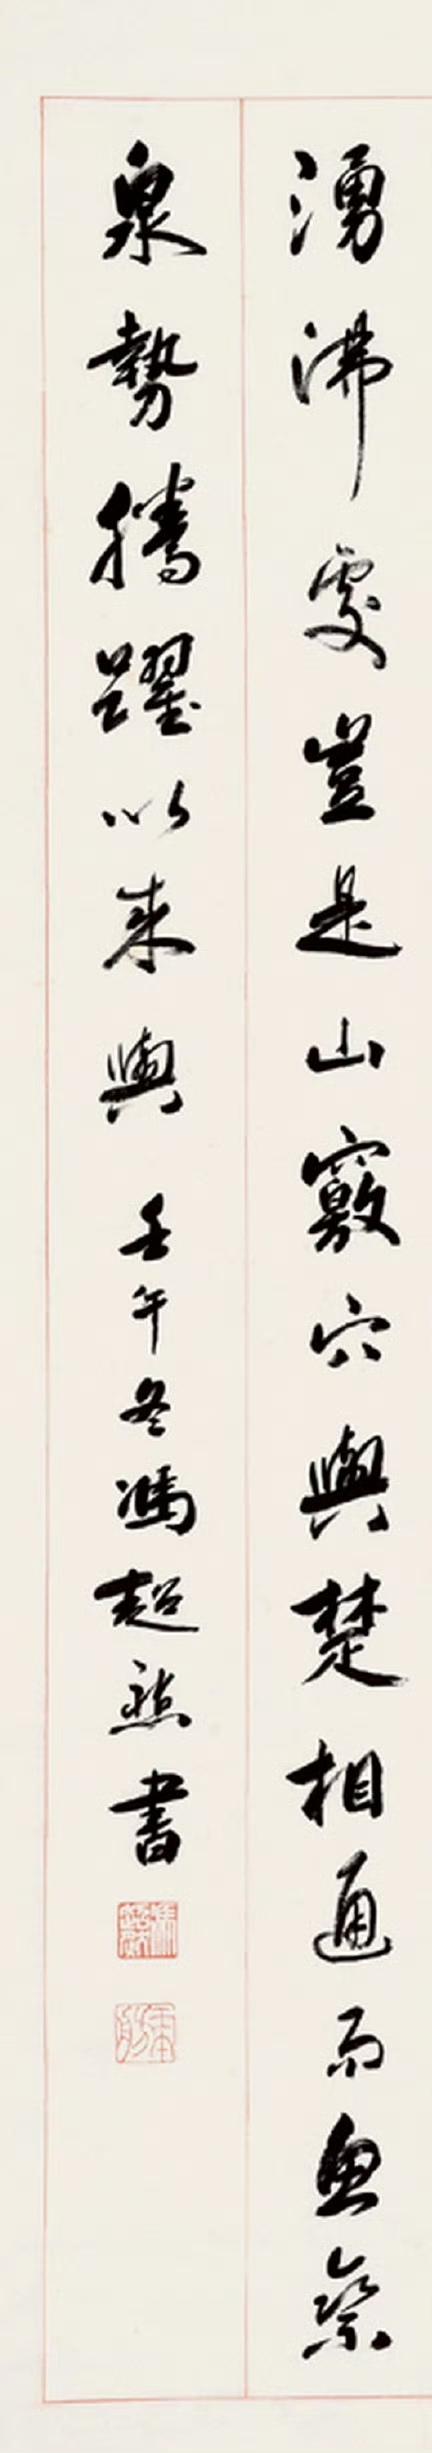 湧沸處豈是山竅穴與楚相通而魚乘
泉勢騰躍以来與 壬午冬馮超然書